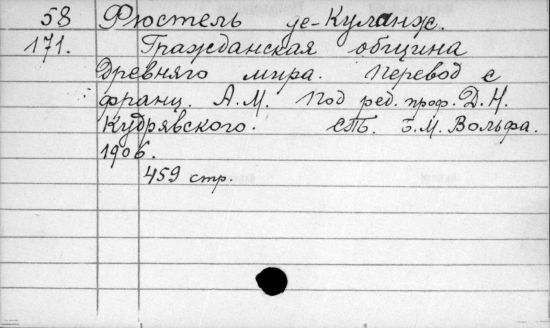 58 Фюстель де-Куланж.
171. Гражданская община
древняго мира. Перевод с
франц. А.М. Под ред. проф. Д.Н.
Кудрявского. СПБ. Б.М. Вольфа.
1906.
459 стр.